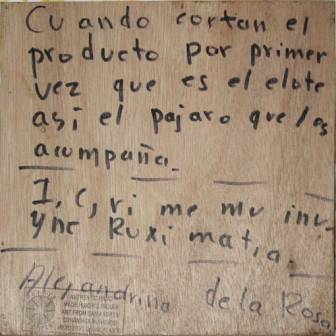 Cuando cortan el
producto por primer
vez que es el elote
así el pajaro que los
acompaña.
I, C, ri me mu inu.
yne Ruxi matia.
Alejandrina de la Rosa